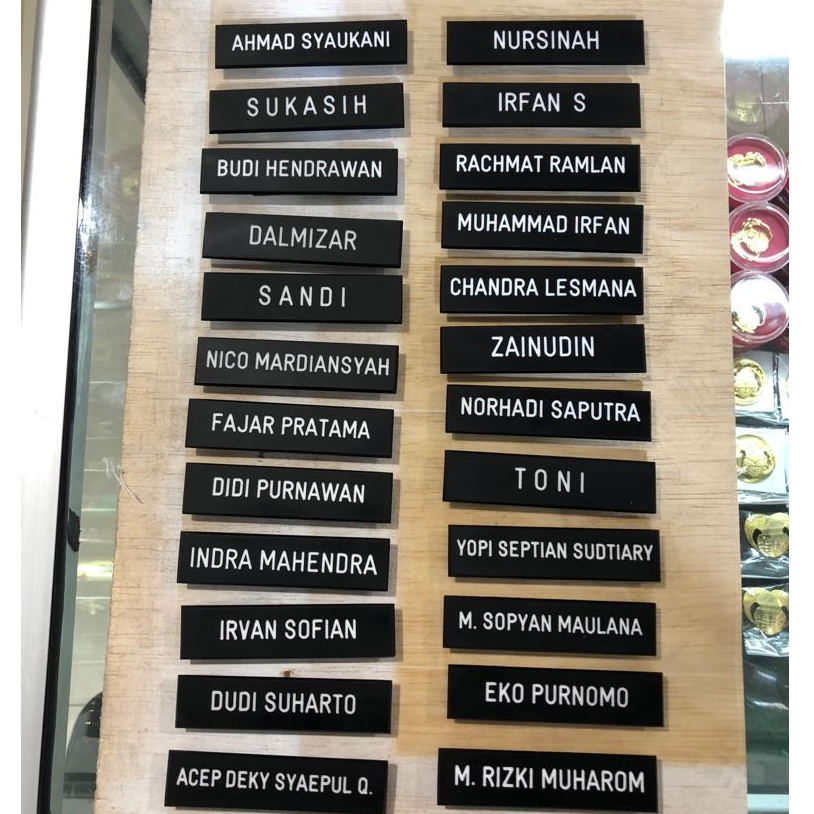 AHMAD SYAUKANI
SUKASIH
BUDI HENDRAWAN
DALMIZAR
SANDI
NICO MARDIANSYAH
FAJAR PRATAMA
DIDI PURNAWAN
INDRA MAHENDRA
IRVAN SOFIAN
DUDI SUHARTO
ACEP DEKY SYAEPUL Q.
NURSINAH
IRFAN S
RACHMAT RAMLAN
MUHAMMAD IRFAN
CHANDRA LESMANA
ZAINUDIN
NORHADI SAPUTRA
TONI
YOPI SEPTIAN SUDTIARY
M. SOPYAN MAULANA
EKO PURNOMO
M. RIZKI MUHAROM